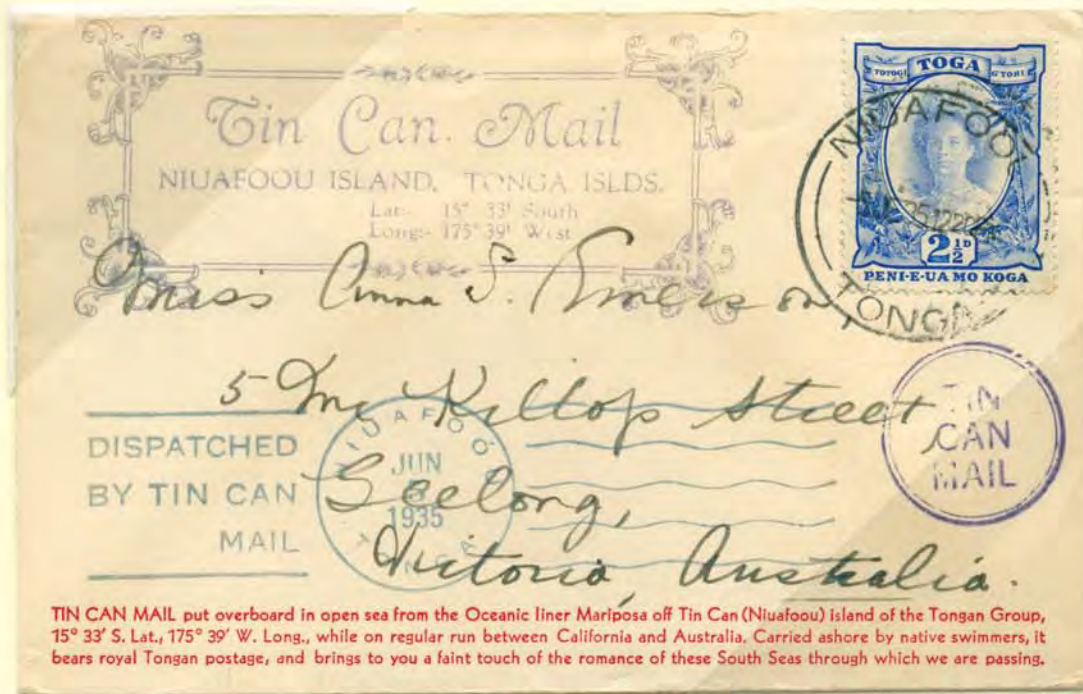 Tin Can. Mail
NIUAFOOU ISLAND. TONGA ISLDS.
Lat:- 15° 33' South
Long:- 175° 39' West
TOGA
TOTOGI
PENI-E-UA MO KOGA
2½D
NIUAFOOU
TONGA
Miss Anna S. Emerson
5 Mc Killop Street
Geelong,
Victoria, Australia.
TIN
CAN
MAIL
DISPATCHED
BY TIN CAN
MAIL
NIUAFOOU
JUN
1935
TIN CAN MAIL put overboard in open sea from the Oceanic liner Mariposa off Tin Can (Niuafoou) island of the Tongan Group,
15° 33' S. Lat., 175° 39' W. Long., while on regular run between California and Australia. Carried ashore by native swimmers, it
bears royal Tongan postage, and brings to you a faint touch of the romance of these South Seas through which we are passing.